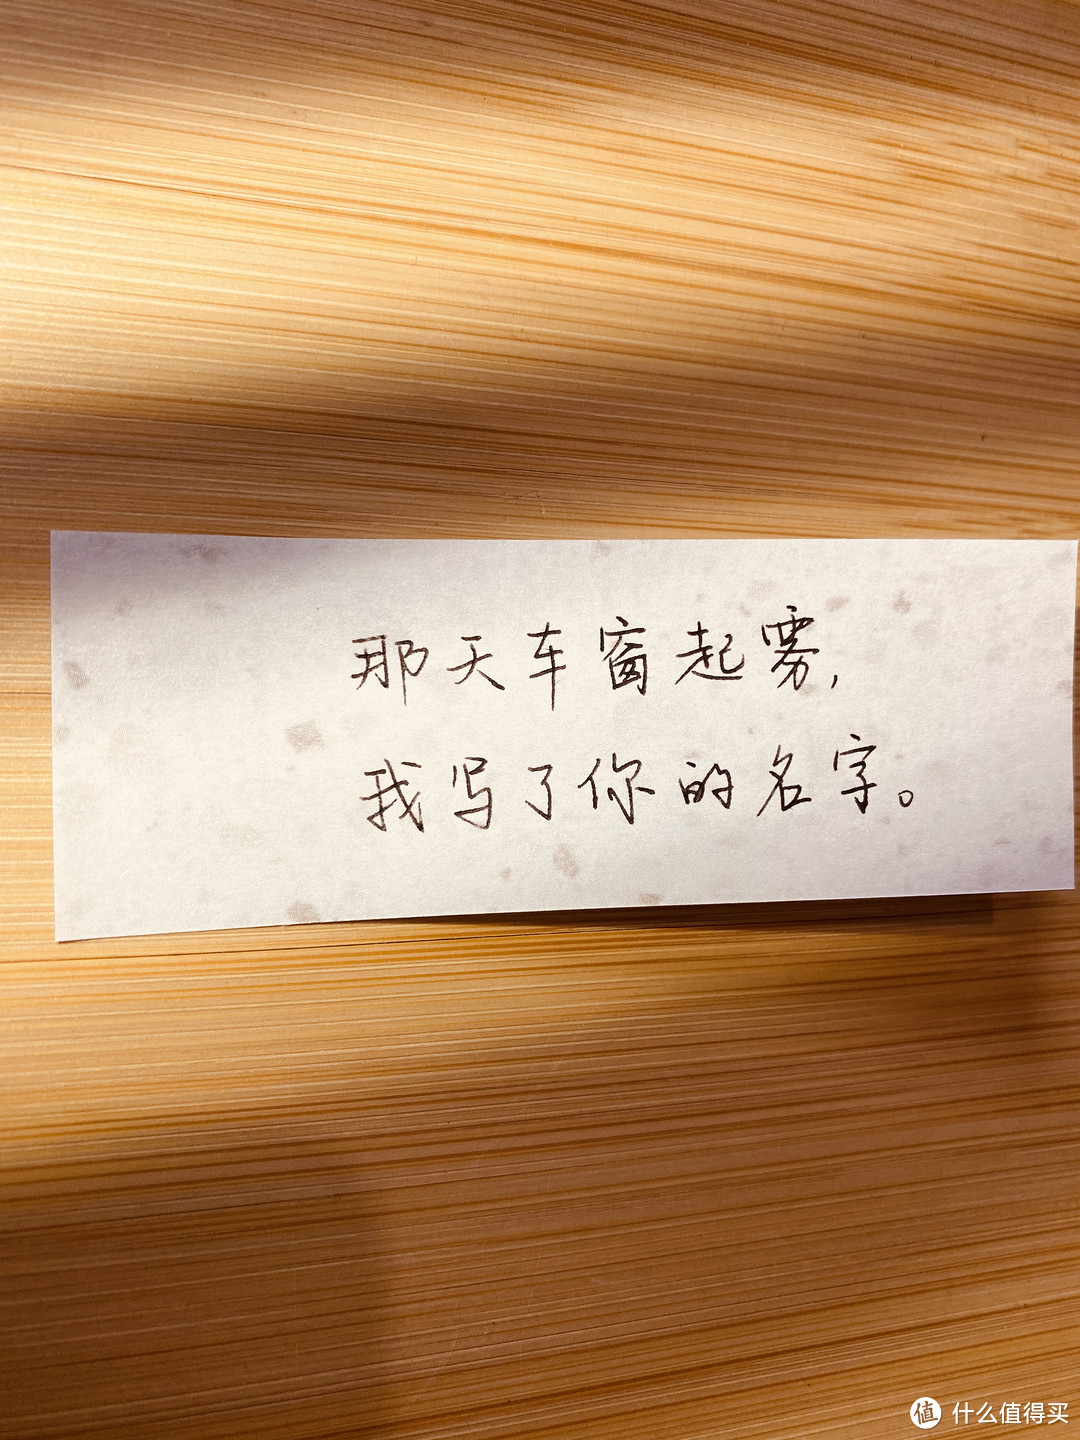 那天车窗起雾,
我写了你的名字。
值 什么值得买